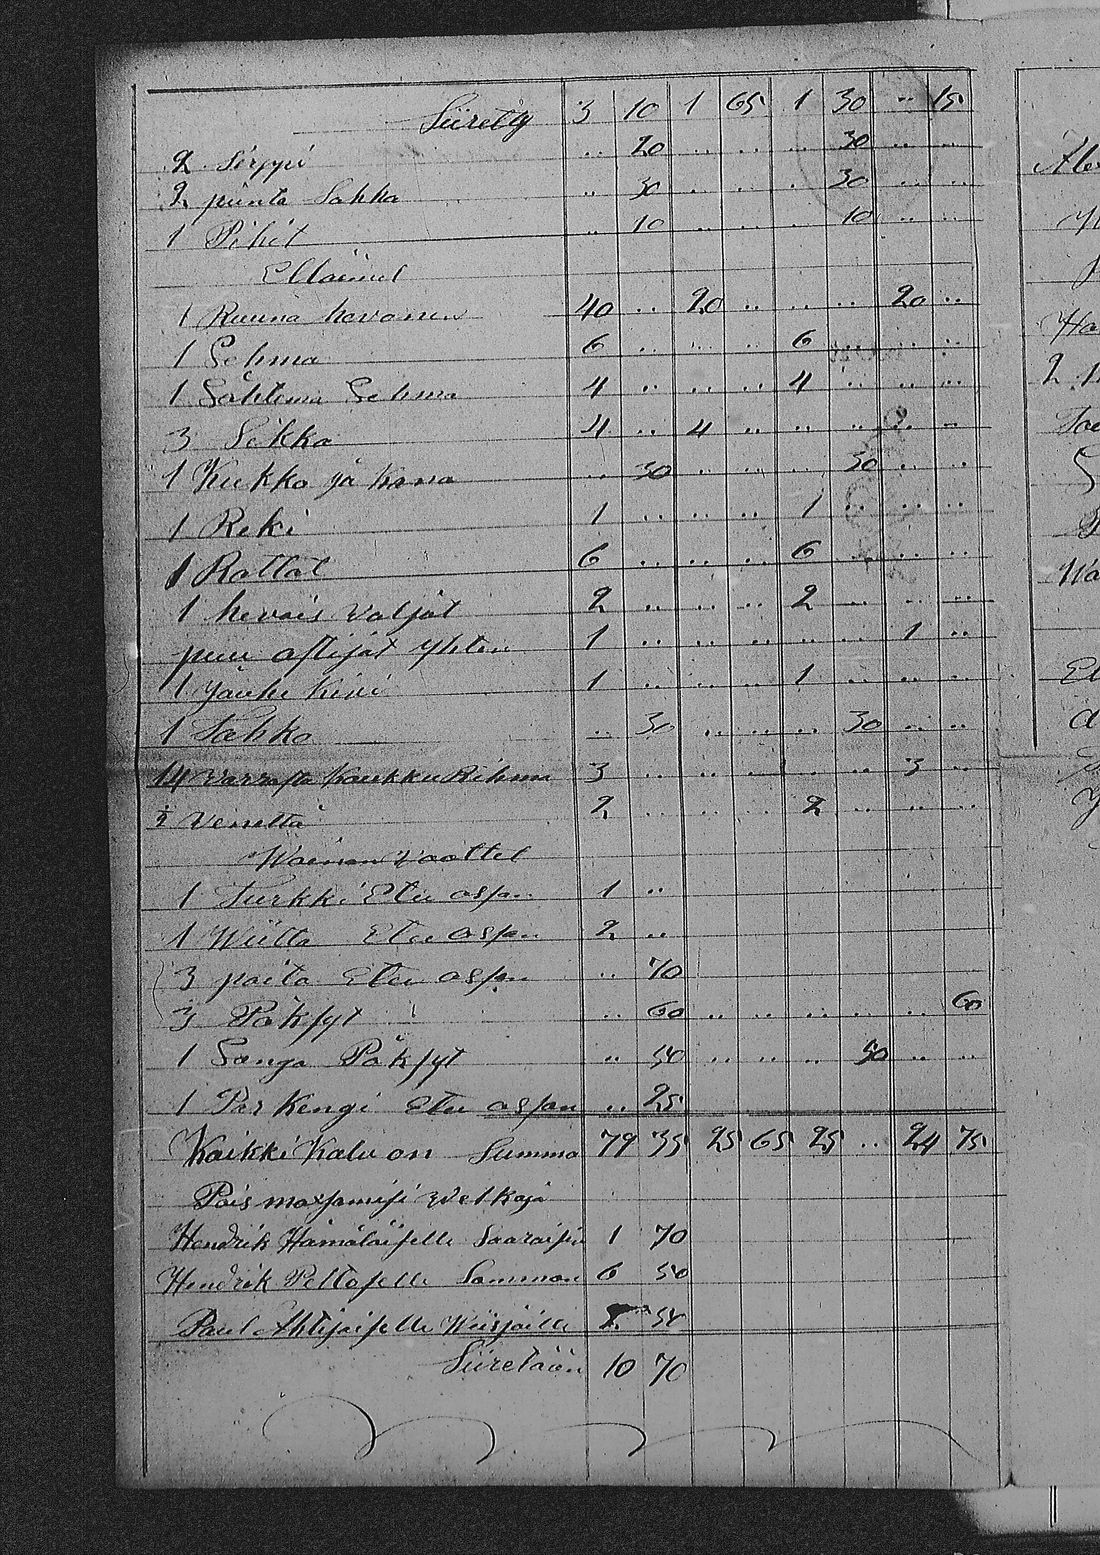 Siiretty 3 10 1 65 1 30 .. 15
2 Sirppi .. 20 .. .. .. 30 .. ..
2 piinta Sahka .. 30 .. .. . 30 .. ..
1 Pihit .. 10 .. .. .. 10 .. ..
Elläimet
1 Ruuna hevonen 40 .. 20 .. .. .. 20 ..
1 Lehmä 6 .. .. .. 6 .. .. ..
1 Sähtema Lehmä 4 .. .. .. 4 .. .. ..
3 Sikka 4 .. 4 .. .. .. .. ..
1 Kukko ja kana .. 30 .. .. .. 30 .. ..
1 Reki 1 .. .. .. 1 .. .. ..
1 Rattat 6 .. .. .. 6 .. .. ..
1 hevois valjät 2 .. .. .. 2 .. .. ..
puu astijat yhten 1 .. .. .. .. .. 1 ..
1 jauhe Kivi 1 .. .. .. 1 .. .. ..
1 Tahko .. 30 .. .. .. 30 .. ..
14 Rihma 3 .. .. .. .. .. 3 ..
½ venettä 2 .. .. .. 2 .. .. ..
Wainan vaattet
1 Turkki Etu osan 1 ..
1 Wiitta Etu osan 2 ..
3 paita Etu osan .. 70
3 Päksyt .. 60 .. .. .. .. .. 60
1 Sanga Päksyt .. 50 .. .. .. 50 .. ..
1 Par Kengi Etu osan .. 25
Kaikki Kalu on Summa 79 35 25 65 25 .. 24 75
Pois maxamisi welkoja
Hendrik Hämäläiselle 1 70
Hendrik Peltoselle Samman 6 50
Paul Ahtijaiselle 2 50
Siiretään 10 70